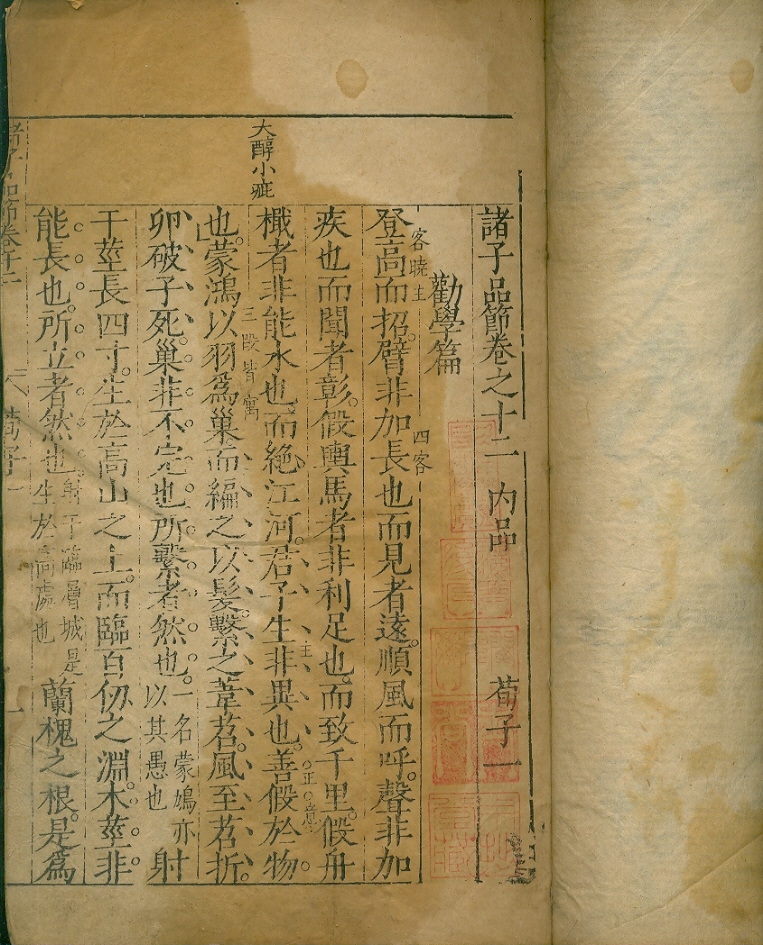 諸子品節卷之十二 內品 荀子一
勸學篇
客曉主 四客
登高而招臂非加長也而見者遠順風而呼聲非加
疾也而聞者彰假輿馬者非利足也而致千里假舟
主 正意
大醇小疵
檝者非能水也而絶江河君子生非異也善假於物
三段皆寓
也蒙鴻以羽爲巢而編之以髮繫之葦苕風至苕折
卵破子死巢非不完也所繫者然也一名蒙鳩亦以其愚也射
干莖長四寸生於高山之上而臨百仞之淵木莖非
能長也所立者然也射干臨層城是生於高處也蘭槐之根是爲
諸子品節卷十二 荀子 一